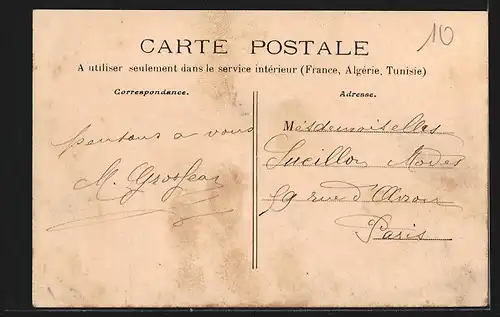 10
CARTE POSTALE
A utiliser seulement dans le service intérieur (France, Algérie, Tunisie)
Correspondance.
Adresse.
pensons a vous
M. Grosjean
Mesdemoiselles
Lucillon Modes
59 rue d'Avron
Paris